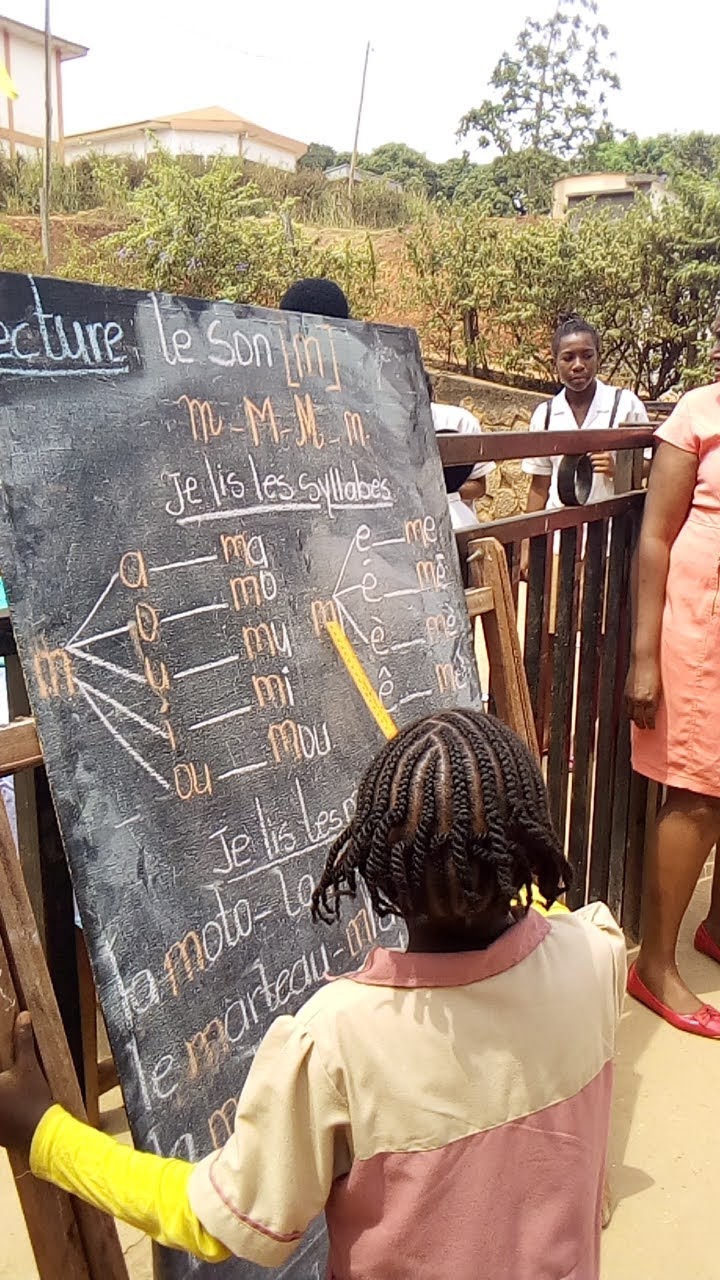 ecture le son [m]
m - M - M - m.
Je lis les syllabes
m
a — ma
o — mo
u — mu
i — mi
ou — mou
m
e — me
é — mé
è — mè
ê —
Je lis les
la moto - la
le marteau -
la